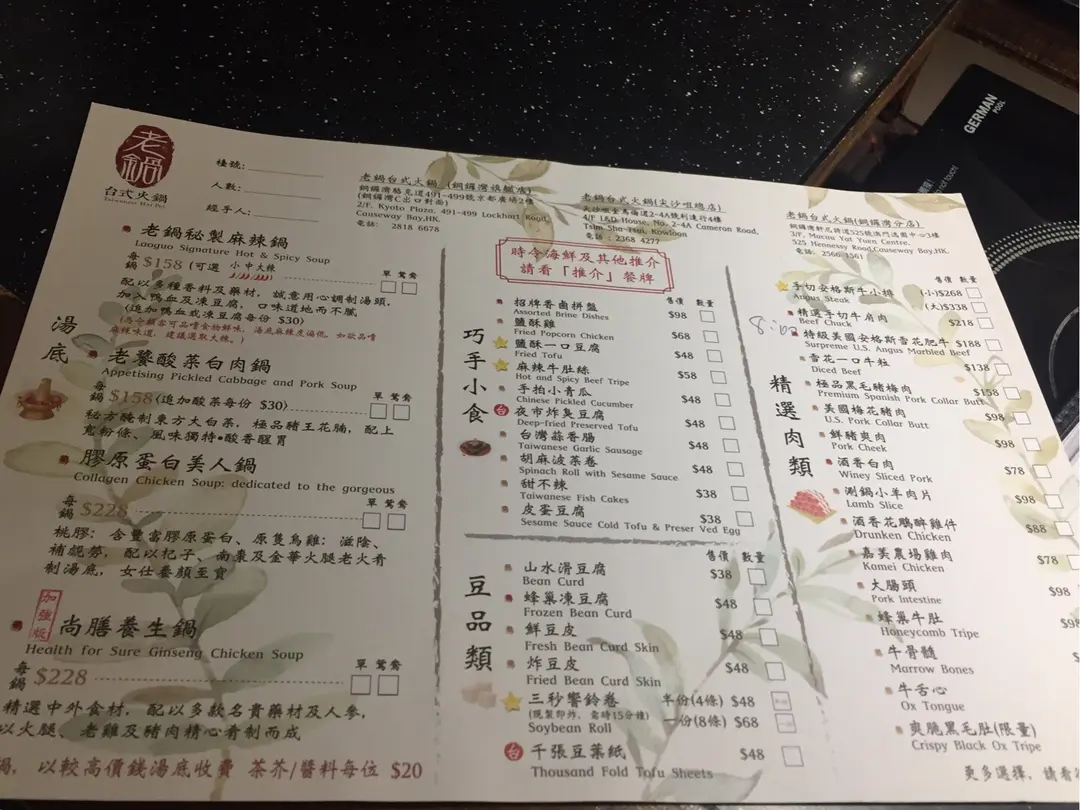 老鍋
台式火鍋
Taiwanese Hot Pot
檯號:
人數:
經手人:
老鍋台式火鍋 (銅鑼灣旗艦店)
銅鑼灣駱克道491-499號京都廣場2樓
(銅鑼灣C出口對面)
2/F. Kyoto Plaza, 491-499 Lockhart Road,
Causeway Bay,HK
電話: 2818 6678
老鍋台式火鍋(尖沙咀總店)
尖沙咀金馬倫道2-4A號利達行4樓
4/F L&D House, No. 2-4A Cameron Road,
Tsim Sha-Tsui, Kowloon
電話: 2368 4277
老鍋台式火鍋(銅鑼灣分店)
3/F, Macau Yat Yuen Centre,
525 Hennessy Road,Causeway Bay,HK.
電話: 2566 1361
湯底
老鍋秘製麻辣鍋
Laoguo Signature Hot & Spicy Soup
單 鴛鴦
每鍋 $158 (可選 小中大辣
配以多種香料及藥材，誠意用心調制湯頭，
加入鴨血及凍豆腐，口味道地而不膩
(追加鴨血或凍豆腐每份 $30)
麻辣味道，建議選取大辣。)
老饕酸菜白肉鍋
Appetising Pickled Cabbage and Pork Soup
單 鴛鴦
每鍋 $158(追加酸菜每份 $30)
秘方醃制東方大白菜，極品豬王花腩，配上
寬粉條、風味獨特•酸香醒胃
膠原蛋白美人鍋
Collagen Chicken Soup: dedicated to the gorgeous
單 鴛鴦
每鍋 $228
桃膠：含豐富膠原蛋白、原隻烏雞：滋陰、
補虢勞，配以杞子、南棗及金華火腿老火肴
制湯底，女仕養顏至寶
加強版
尚膳養生鍋
Health for Sure Ginseng Chicken Soup
單 鴛鴦
每鍋 $228
精選中外食材，配以多款名貴藥材及人參，
以火腿、老雞及豬肉精心肴制而成
鍋，以較高價錢湯底收費 茶芥/醬料每位 $20
時令海鮮及其他推介
請看「推介」餐牌
巧手小食
售價 數量
招牌香鹵拼盤
Assorted Brine Dishes $98
鹽酥雞
Fried Popcorn Chicken $68
鹽酥一口豆腐
Fried Tofu $48
麻辣牛肚絲
Hot and Spicy Beef Tripe $58
手拍小青瓜
Chinese Pickled Cucumber $48
台 夜市炸臭豆腐
Deep-fried Preserved Tofu $48
台灣蒜香腸
Taiwanese Garlic Sausage $48
胡麻波菜卷
Spinach Roll with Sesame Sauce $48
甜不辣
Taiwanese Fish Cakes $38
皮蛋豆腐
Sesame Sauce Cold Tofu & Preser Ved Egg $38
豆品類
售價 數量
山水滑豆腐 $38
Bean Curd
蜂巢凍豆腐 $48
Frozen Bean Curd
鮮豆皮 $48
Fresh Bean Curd Skin
炸豆皮 $48
Fried Bean Curd Skin
三秒響鈴卷 半份(4條) $48
(現製即炸，需時15分鐘) 一份(8條) $68
Soybean Roll
台 千張豆葉紙 $48
Thousand Fold Tofu Sheets
精選肉類
售價 數量
手切安格斯牛小排 (小)$268
Angus Steak (大)$338
精選手切牛肩肉 $218
Beef Chuck
特級美國安格斯雪花肥牛 $188
Surpreme U.S. Angus Marbled Beef
雪花一口牛粒 $138
Diced Beef
極品黑毛豬梅肉 $158
Premium Spanish Pork Collar Butt
美國梅花豬肉 $98
U.S. Pork Collar Butt
鮮豬爽肉 $98
Pork Cheek
酒香白肉 $78
Winey Sliced Pork
涮鍋小羊肉片 $98
Lamb Slice
酒香花鵰醉雞件 $88
Drunken Chicken
嘉美農場雞肉 $78
Kamei Chicken
大腸頭 $98
Pork Intestine
蜂巢牛肚
Honeycomb Tripe
牛骨髓
Marrow Bones
牛舌心
Ox Tongue
爽脆黑毛肚(限量)
Crispy Black Ox Tripe
更多選擇，請看
GERMAN
POOL